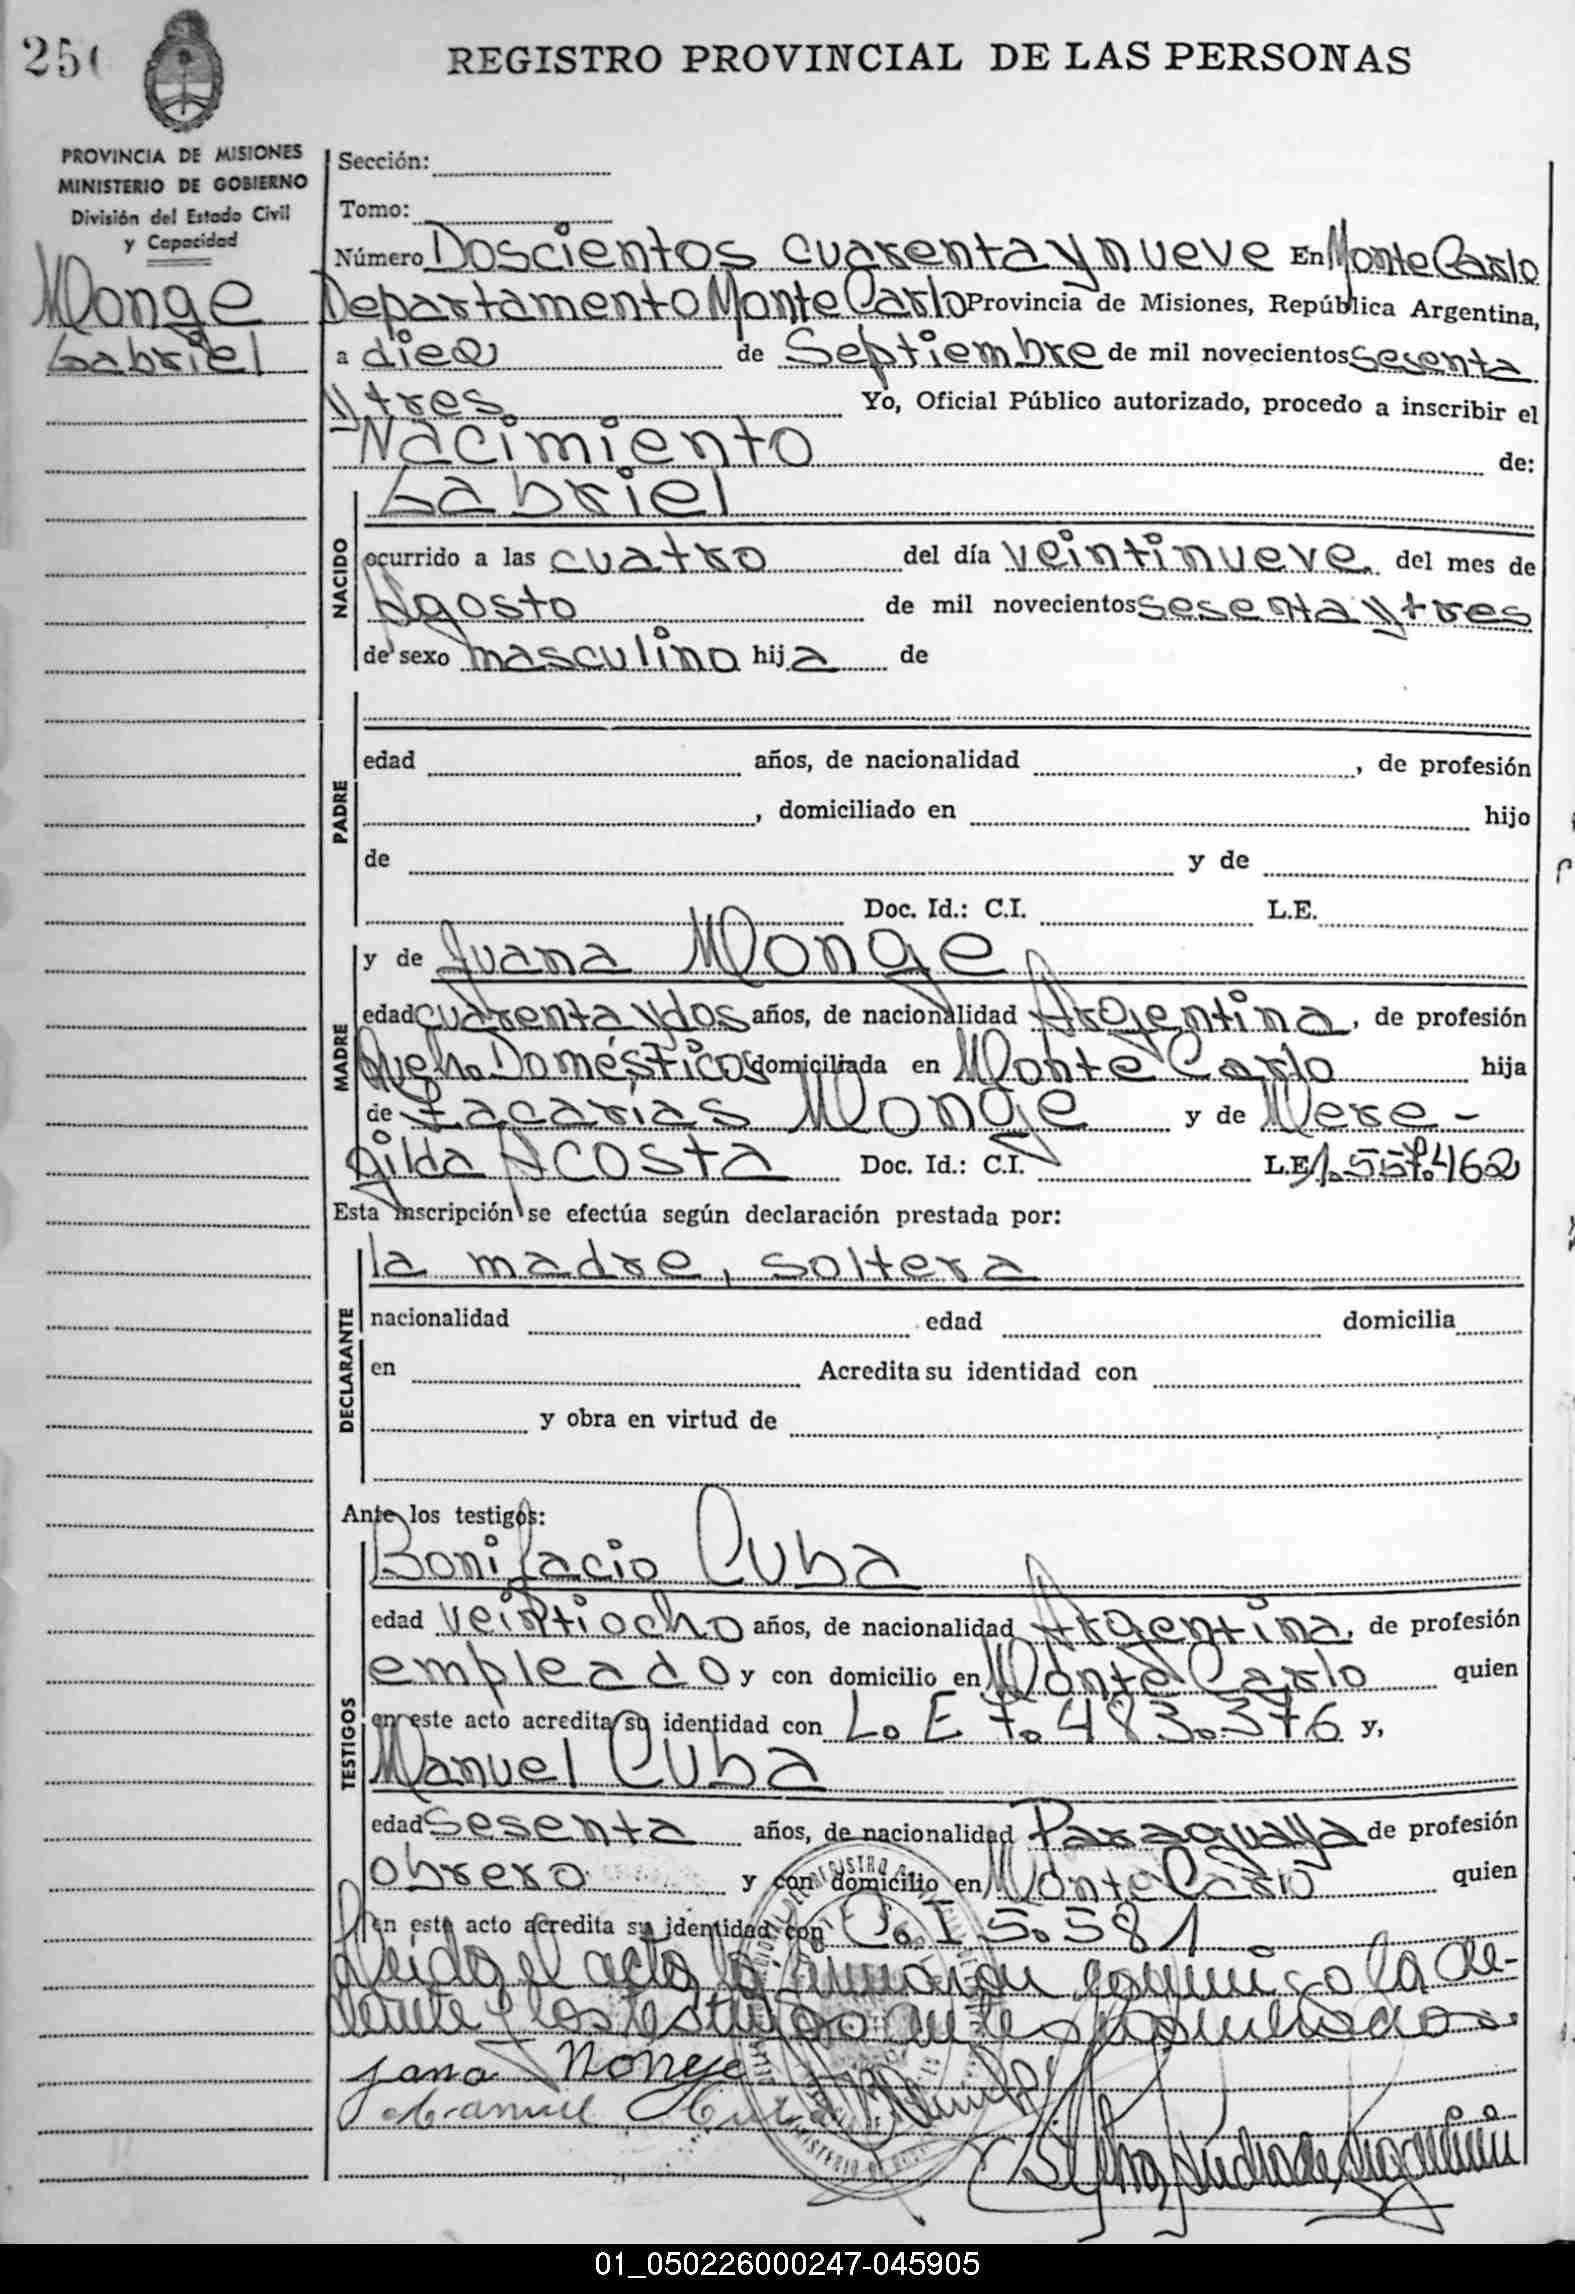 25
REGISTRO PROVINCIAL DE LAS PERSONAS
PROVINCIA DE MISIONES
MINISTERIO DE GOBIERNO
División del Estado Civil
y Capacidad
Monge
Gabriel
Sección:
Tomo:
Número Doscientos cuarenta y nueve En Monte Carlo
Departamento Monte Carlo Provincia de Misiones, República Argentina,
a diez de Septiembre de mil novecientos sesenta
y tres Yo, Oficial Público autorizado, procedo a inscribir el
Nacimiento de:
NACIDO
Gabriel
ocurrido a las cuatro del día veintinueve del mes de
Agosto de mil novecientos sesenta y tres
de sexo masculino hija de
PADRE
edad años, de nacionalidad , de profesión
, domiciliado en hijo
de y de
Doc. Id.: C.I. L.E.
MADRE
y de Juana Monge
edad cuarenta y dos años, de nacionalidad Argentina, de profesión
Queh. Domésticos domiciliada en Monte Carlo hija
de Zacarias Monge y de Mere-
gilda Acosta Doc. Id.: C.I. L.E. 1.557.462
Esta inscripción se efectúa según declaración prestada por:
DECLARANTE
la madre, soltera
nacionalidad edad domicilia
en Acredita su identidad con
y obra en virtud de
Ante los testigos:
TESTIGOS
Bonifacio Cuba
edad veintiocho años, de nacionalidad Argentina, de profesión
empleado y con domicilio en Monte Carlo quien
en este acto acredita su identidad con L. E 7.483.376 y,
Manuel Cuba
edad sesenta años, de nacionalidad Paraguaya de profesión
obrero y con domicilio en Monte Carlo quien
en este acto acredita su identidad con C. I 5.581
Leido el acta la firmaron conmigo la de-
y los testigos antes nombrados.
Juana Monge
Manuel Cuba
01_050226000247-045905